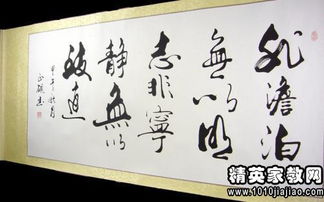 非澹泊
無以明
志非寧
靜無以
致遠
甲午秋月
精英家教网
www.1010jiajiao.com